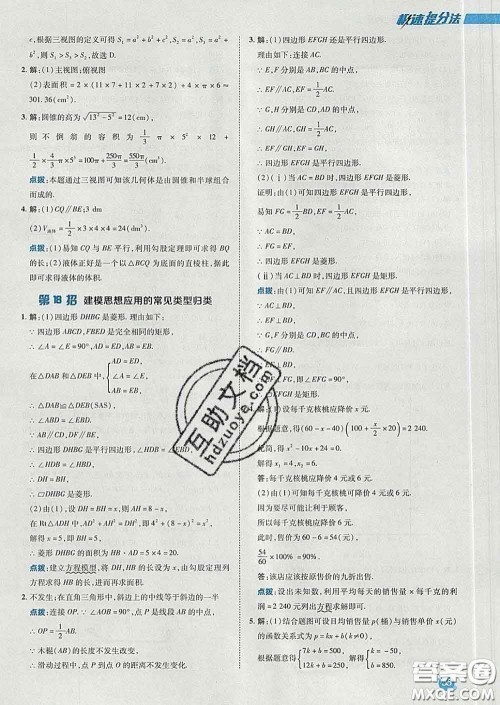 极速提分法
c，根据三视图的定义可得 S₁ = a² + b² + c²，S₂ =
，则 S₁ > S₂ > S₃，故选 D.
2. 解：(1) 主视图；俯视图
(2) 表面积 = 2 × (11 × 7 + 11 × 2 + 7 × 2) + 4 × π × 6 ≈
301. 36(cm²).
3. 解：圆锥的高为√(13² - 5²) = 12(cm)，
则不倒翁的容积为 1/3 × π × 5² × 12 +
1/2 × 4/3 × π × 5³ = 100π + 250π/3 = 550π/3 (cm³).
点拨：本题通过三视图可知该几何体是由圆锥和半球组合
而成的.
4. 解：(1) CQ // BE；3 dm
(2) V液体 = 1/2 × 3 × 4 × 4 = 24(dm³).
点拨：(1) 易知 CQ 与 BE 平行，利用勾股定理即可求得 BQ
的长；(2) 液体正好是一个以 △BCQ 为底面的直棱柱，据此
即可求得液体的体积.
第 18 招 建模思想应用的常见类型归类
1. 解：(1) 四边形 DHBG 是菱形. 理由如下：
∵ 四边形 ABCD，FBED 是完全相同的矩形，
∴ ∠A = ∠E = 90°，AD = ED，AB = EB.
在 △DAB 和 △DEB 中，{AD = ED，∠A = ∠E，AB = EB，
∴ △DAB ≌ △DEB(SAS)，
∴ ∠ABD = ∠EBD.
∵ AB // CD，DF // BE，
∴ 四边形 DHBG 是平行四边形，∠HDB = ∠EBD，
∴ ∠HDB = ∠HBD，
∴ DH = BH，
∴ □DHBG 是菱形.
(2) 由 (1)，设 DH = BH = x，则 AH = 8 - x，
在 Rt△ADH 中，AD² + AH² = DH²，即 4² + (8 - x)² = x²，
解得 x = 5，即 BH = 5，
∴ 菱形 DHBG 的面积为 HB · AD = 5 × 4 = 20.
点拨：建立方程模型，设 DH = BH = x，由勾股定理列方程
求解.
2. 解：不发生变化. 理由如下：
∵ 在直角三角形中，斜边上的中线等于斜边的一半，
连接 OP. ∵ ∠AOB = 90°，P 是 AB 的中点，
∴ OP = 1/2 AB.
∵ 木棍 AB 的长度不变，
∴ 滑动过程中，点 P 到点 O 的距离不发生变化.
3. 解：(1) 四边形 EFGH 还是平行四边形.
理由如下：连接 AC.
∵ E，F 分别是 AB，BC 的中点，
∴ EF // AC，EF = 1/2 AC.
∵ G，H 分别是 CD，AD 的中点，
∴ GH // AC，GH = 1/2 AC.
∴ EF // GH，EF = GH.
∴ 四边形 EFGH 是平行四边形.
(2) (ⅰ) 当 AC = BD 时，四边形 EFGH 是菱形.
证明：由 (1) 可知四边形 EFGH 是平行四边形，
∵ AC = BD，
∴ EF = FG，
∴ 四边形 EFGH 是菱形.
(ⅱ) 当 AC ⊥ BD 时，四边形 EFGH 为矩形.
理由如下：
由 (1) 可知四边形 EFGH 是平行四边形.
∵ AC ⊥ BD，
∴ EF ⊥ BD.
∵ FG // BD，
∴ EF ⊥ FG，
即 ∠EFG = 90°，
4. 解：(1) 设每千克核桃应降价 x 元.
根据题意，得 (60 - x - 40)(100 + x/2 × 20) = 2 240.
化简，得 x² - 10x + 24 = 0.
解得 x₁ = 4，x₂ = 6.
答：每千克核桃应降价 4 元或 6 元.
(2) 由 (1) 可知每千克核桃可降价 4 元或 6 元.
∵ 要尽可能让利于顾客，
∴ 每千克核桃应降价 6 元.
此时，售价为 60 - 6 = 54(元)，
54/60 × 100% = 90%.
答：该店应按原售价的九折出售.
点拨：设出未知数，利用平均每天的销售量 × 每千克的利
润 = 2 240 元列出方程求解即可.
5. 解：(1) 结合题图可设日均销售量 p(桶) 与销售单价 x(元)
的函数关系式为 p = kx + b(k ≠ 0)，
根据题意得 {7k + b = 500，12k + b = 250，解得 {k = -50，b = 850.
互助文档
hdzuoye.com
答案圈
MXQE.COM